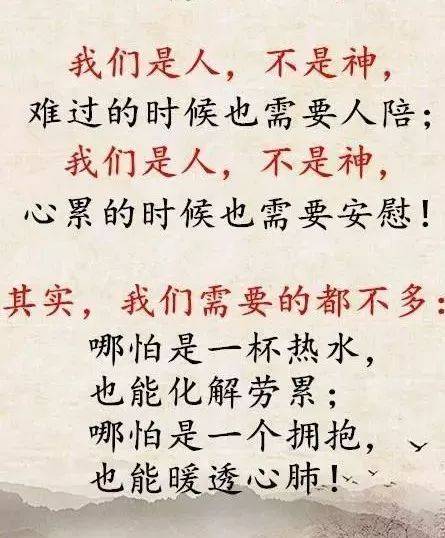 我们是人，不是神，
难过的时候也需要人陪；
我们是人，不是神，
心累的时候也需要安慰！
其实，我们需要的都不多：
哪怕是一杯热水，
也能化解劳累；
哪怕是一个拥抱，
也能暖透心肺！